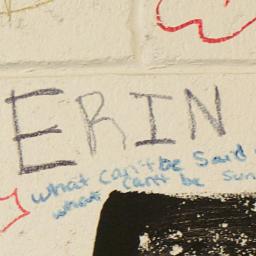 ERIN
what can't be Said
when can't be Sun